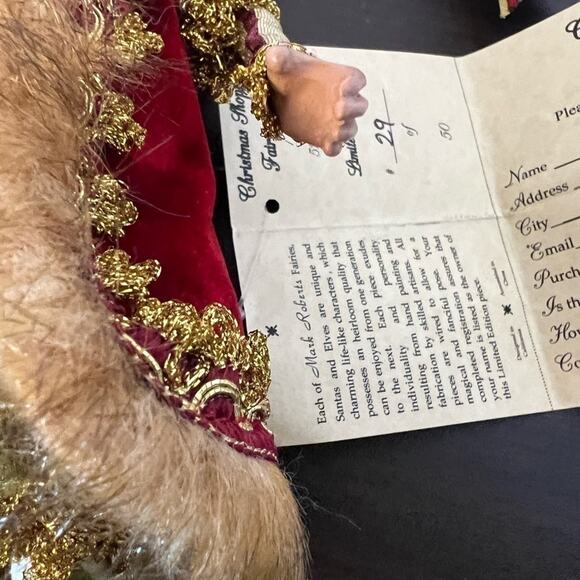 Christmas Shopp
Fair
Limite
# 29 of 50
Each of Mark Roberts Fairies,
Santas and Elves are unique and
charming life-like characters, which
possesses an heirloom quality that
can be enjoyed from one generation
to the next. Each piece exudes
individuality and personality
resulting from skilled hand painting. All
fabrication by artisans.
are wired to allow for a
pieces and fanciful pose. Your
magical registration assures that
completed is listed as the owner of
your name
this Limited Edition piece.
Designed in
California
Assembled in
China
C
Plea
Name
Address
City
Email
Purch
Is th
How
Co